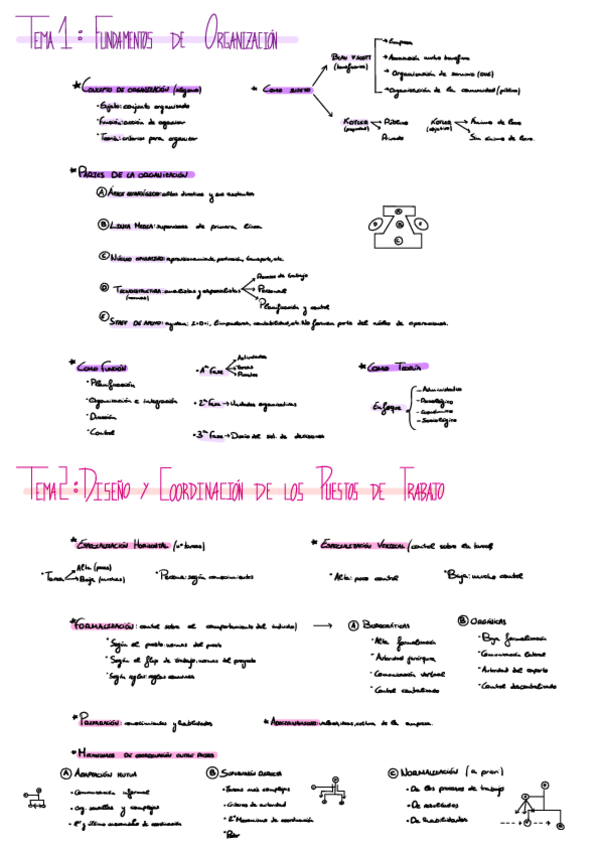 TEMA 1: FUNDAMENTOS DE ORGANIZACIÓN
* CONCEPTO DE ORGANIZACIÓN
· Sujeto: conjunto organizado
· Función: acción de organizar
· Teoría: criterios para organizar
* COMO SUJETO
BLAU Y SCOTT (beneficiarios)
→ Empresa
→ Asociación mutuo beneficio
→ Organización de servicio (ONG)
→ Organización de la comunidad (pública)
KOTLER (propiedad)
Pública
Privada
KOTLER (objetivo)
Ánimo de lucro
Sin ánimo de lucro.
* PARTES DE LA ORGANIZACIÓN
Ⓐ ÁPICE ESTRATÉGICO: altos directivos y sus ayudantes
Ⓑ LÍNEA MEDIA: supervisores de primera línea
Ⓒ NÚCLEO OPERATIVO: aprovisionamiento, producción, transporte, etc.
Ⓓ TECNOESTRUCTURA: analistas y especialistas (normas)
Proceso de trabajo
Personal
Planificación y control
Ⓔ STAFF DE APOYO: ayudan: I+D+i, contabilidad, etc. No forman parte del núcleo de operaciones.
* COMO FUNCIÓN
· Planificación
· Organización e integración
· Dirección
· Control
· 1ª FASE
Actividades
Tareas
Puestos
· 2ª FASE → Unidades organizativas
· 3ª FASE → de decisiones
* COMO TEORÍA
Enfoque
- Administrativo
- Psicológico
- Económico
- Sociológico
TEMA 2: DISEÑO Y COORDINACIÓN DE LOS PUESTOS DE TRABAJO
* ESPECIALIZACIÓN HORIZONTAL (nº tareas)
· Tarea
Alta (pocas)
Baja (muchas)
· Persona: según conocimientos
* ESPECIALIZACIÓN VERTICAL (control sobre las tareas)
· Alta: poco control
· Baja: mucho control
* FORMALIZACIÓN: control sobre el comportamiento del individuo →
· Según el puesto: normas del puesto
· Según el flujo de trabajo: normas del proyecto
· Según reglas: reglas comunes
Ⓐ BUROCRÁTICAS
· Alta formalización
· Autoridad jerárquica
· Comunicación vertical
· Control centralizado
Ⓑ ORGÁNICAS
· Baja formalización
· Comunicación lateral
· Autoridad del experto
· Control descentralizado
* PREPARACIÓN: conocimientos y habilidades
* ADOCTRINAMIENTO: valores, cultura de la empresa.
* MECANISMOS DE COORDINACIÓN ENTRE
Ⓐ ADAPTACIÓN MUTUA
· Comunicación informal
· Org. sencillas y complejas
· 1º y último mecanismo de coordinación
Ⓑ SUPERVISIÓN DIRECTA
· Tareas más complejas
· Criterio de autoridad
· 2º Mecanismo de coordinación
Ⓒ NORMALIZACIÓN (a priori)
· De los procesos de trabajo
· De resultados
· De habilidades